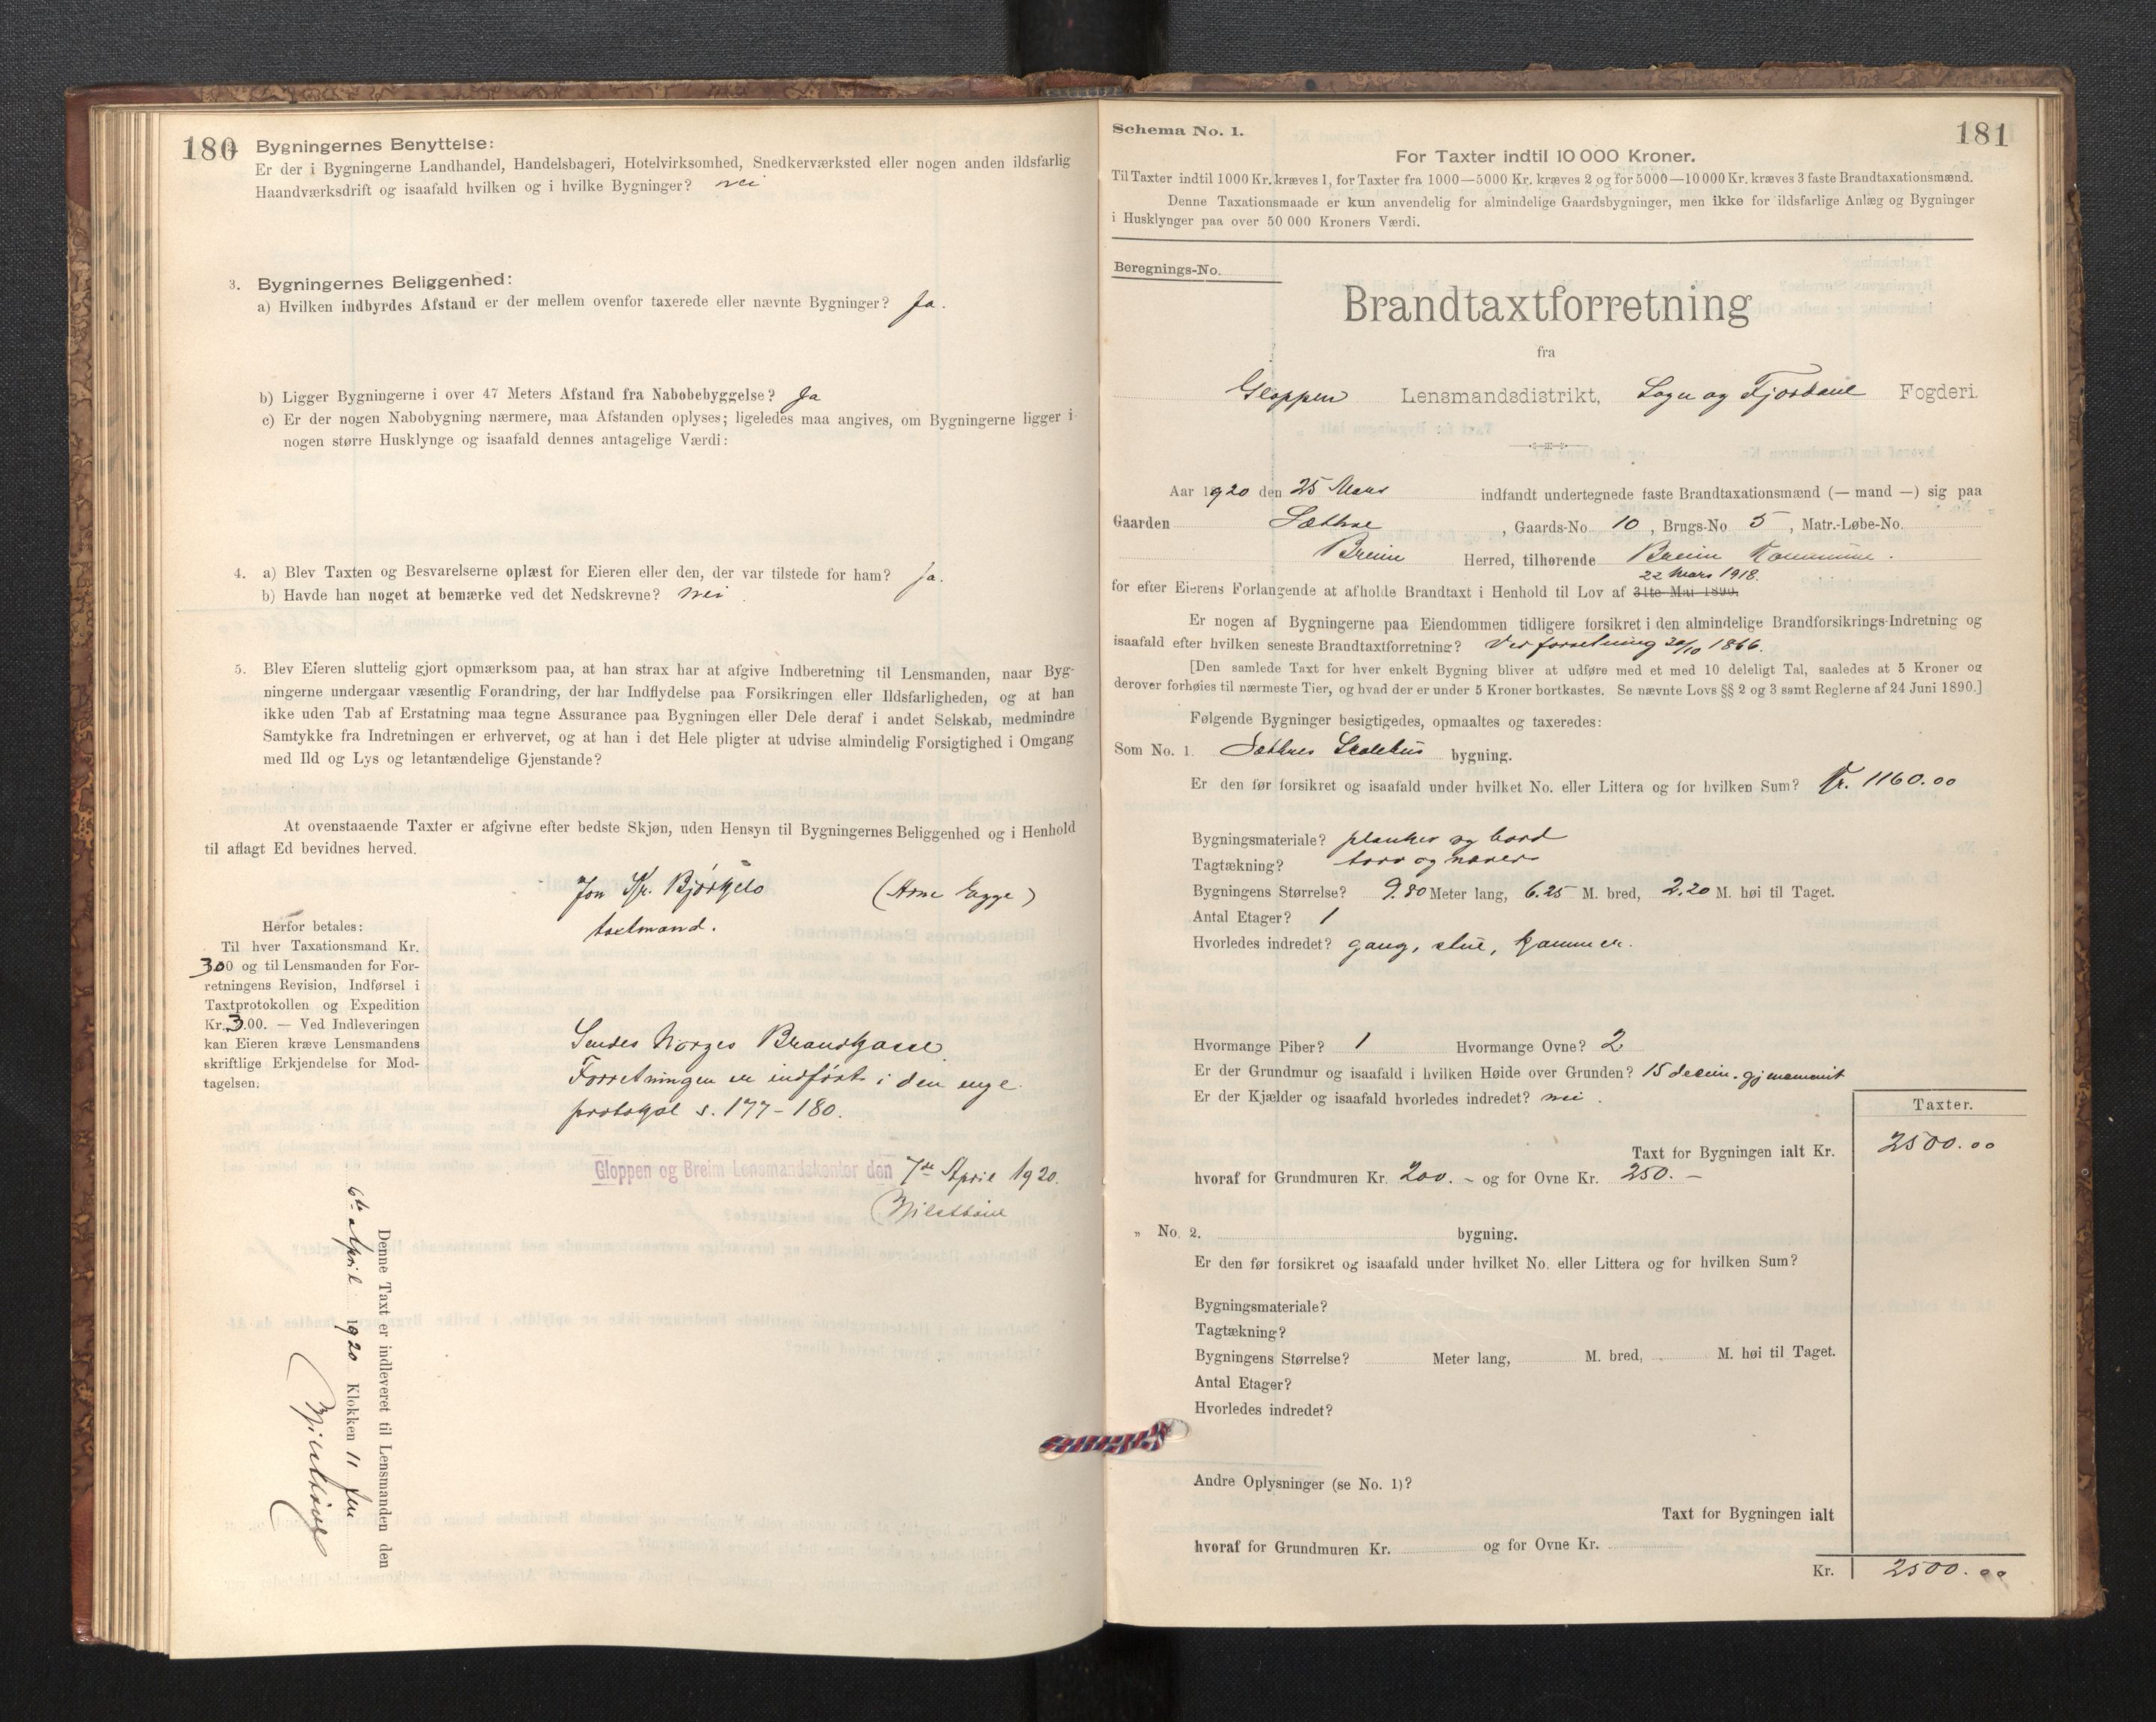 180
2. Bygningernes Benyttelse:
Er der i Bygningerne Landhandel, Handelsbageri, Hotelvirksomhed, Snedkerværksted eller nogen anden ildsfarlig
Haandværksdrift og isaafald hvilken og i hvilke Bygninger? nei
3. Bygningernes Beliggenhed:
a) Hvilken indbyrdes Afstand er der mellem ovenfor taxerede eller nævnte Bygninger? Ja.
b) Ligger Bygningerne i over 47 Meters Afstand fra Nabobebyggelse? Ja
c) Er der nogen Nabobygning nærmere, maa Afstanden oplyses; ligeledes maa angives, om Bygningerne ligger i
nogen større Husklynge og isaafald dennes antagelige Værdi:
4. a) Blev Taxten og Besvarelserne oplæst for Eieren eller den, der var tilstede for ham? Ja.
b) Havde han noget at bemærke ved det Nedskrevne? nei
5. Blev Eieren sluttelig gjort opmærksom paa, at han strax har at afgive Indberetning til Lensmanden, naar Byg-
ningerne undergaar væsentlig Forandring, der har Indflydelse paa Forsikringen eller Ildsfarligheden, og at han
ikke uden Tab af Erstatning maa tegne Assurance paa Bygningen eller Dele deraf i andet Selskab, medmindre
Samtykke fra Indretningen er erhvervet, og at han i det Hele pligter at udvise almindelig Forsigtighed i Omgang
med Ild og Lys og letantændelige Gjenstande?
At ovenstaaende Taxter er afgivne efter bedste Skjøn, uden Hensyn til Bygningernes Beliggenhed og i Henhold
til aflagt Ed bevidnes herved.
Jon Kr. Bjørkelo (Arne Egge)
taxtmand.
Herfor betales:
Til hver Taxationsmand Kr.
3.00 og til Lensmanden for For-
retningens Revision, Indførsel i
Taxtprotokollen og Expedition
Kr. 3.00. — Ved Indleveringen
kan Eieren kræve Lensmandens
skriftlige Erkjendelse for Mod-
tagelsen.
Sendes Norges Brandkasse.
Forretningen er indført i den nye
protokol s. 177-180.
Gloppen og Breim Lensmandskontor den 7de April 1920.
Denne Taxt er indleveret til Lensmanden den
6te April 1920 Klokken 11 fm
Schema No. 1.
181
For Taxter indtil 10 000 Kroner.
Til Taxter indtil 1000 Kr. kræves 1, for Taxter fra 1000—5000 Kr. kræves 2 og for 5000—10 000 Kr. kræves 3 faste Brandtaxationsmænd.
Denne Taxationsmaade er kun anvendelig for almindelige Gaardsbygninger, men ikke for ildsfarlige Anlæg og Bygninger
i Husklynger paa over 50 000 Kroners Værdi.
Beregnings-No.
Brandtaxtforretning
fra
Gloppen Lensmandsdistrikt, Sogn og Fjordane Fogderi.
Aar 1920 den 25 Mars indfandt undertegnede faste Brandtaxationsmænd (— mand —) sig paa
Gaarden Sæthre, Gaards-No. 10, Brugs-No. 5, Matr.-Løbe-No.
Breim Herred, tilhørende Breim Kommune.
22 mars 1918.
for efter Eierens Forlangende at afholde Brandtaxt i Henhold til Lov af 31te Mai 1890.
Er nogen af Bygningerne paa Eiendommen tidligere forsikret i den almindelige Brandforsikrings-Indretning og
isaafald efter hvilken seneste Brandtaxtforretning? Ved forretning 20/10 1866.
[Den samlede Taxt for hver enkelt Bygning bliver at udføre med et med 10 deleligt Tal, saaledes at 5 Kroner og
derover forhøies til nærmeste Tier, og hvad der er under 5 Kroner bortkastes. Se nævnte Lovs §§ 2 og 3 samt Reglerne af 24 Juni 1890.]
Følgende Bygninger besigtigedes, opmaaltes og taxeredes:
Som No. 1. Sæthres Skolehus bygning.
Er den før forsikret og isaafald under hvilket No. eller Littera og for hvilken Sum? Kr. 1160.00
Bygningsmateriale? planker og bord
Tagtækning? torv og næver
Bygningens Størrelse? 9.80 Meter lang, 6.25 M. bred, 2.20 M. høi til Taget.
Antal Etager? 1
Hvorledes indredet? gang, stue, kammer.
Hvormange Piber? 1 Hvormange Ovne? 2
Er der Grundmur og isaafald i hvilken Høide over Grunden? 15 decim. gjennemsnit
Er der Kjælder og isaafald hvorledes indredet? nei.
Taxter.
Taxt for Bygningen ialt Kr. 2500.00
hvoraf for Grundmuren Kr. 200. - og for Ovne Kr. 250. -
„ No. 2. bygning.
Er den før forsikret og isaafald under hvilket No. eller Littera og for hvilken Sum?
Bygningsmateriale?
Tagtækning?
Bygningens Størrelse? Meter lang, M. bred, M. høi til Taget.
Antal Etager?
Hvorledes indredet?
Andre Oplysninger (se No. 1)?
Taxt for Bygningen ialt
hvoraf for Grundmuren Kr. og for Ovne Kr.
Kr. 2500.00